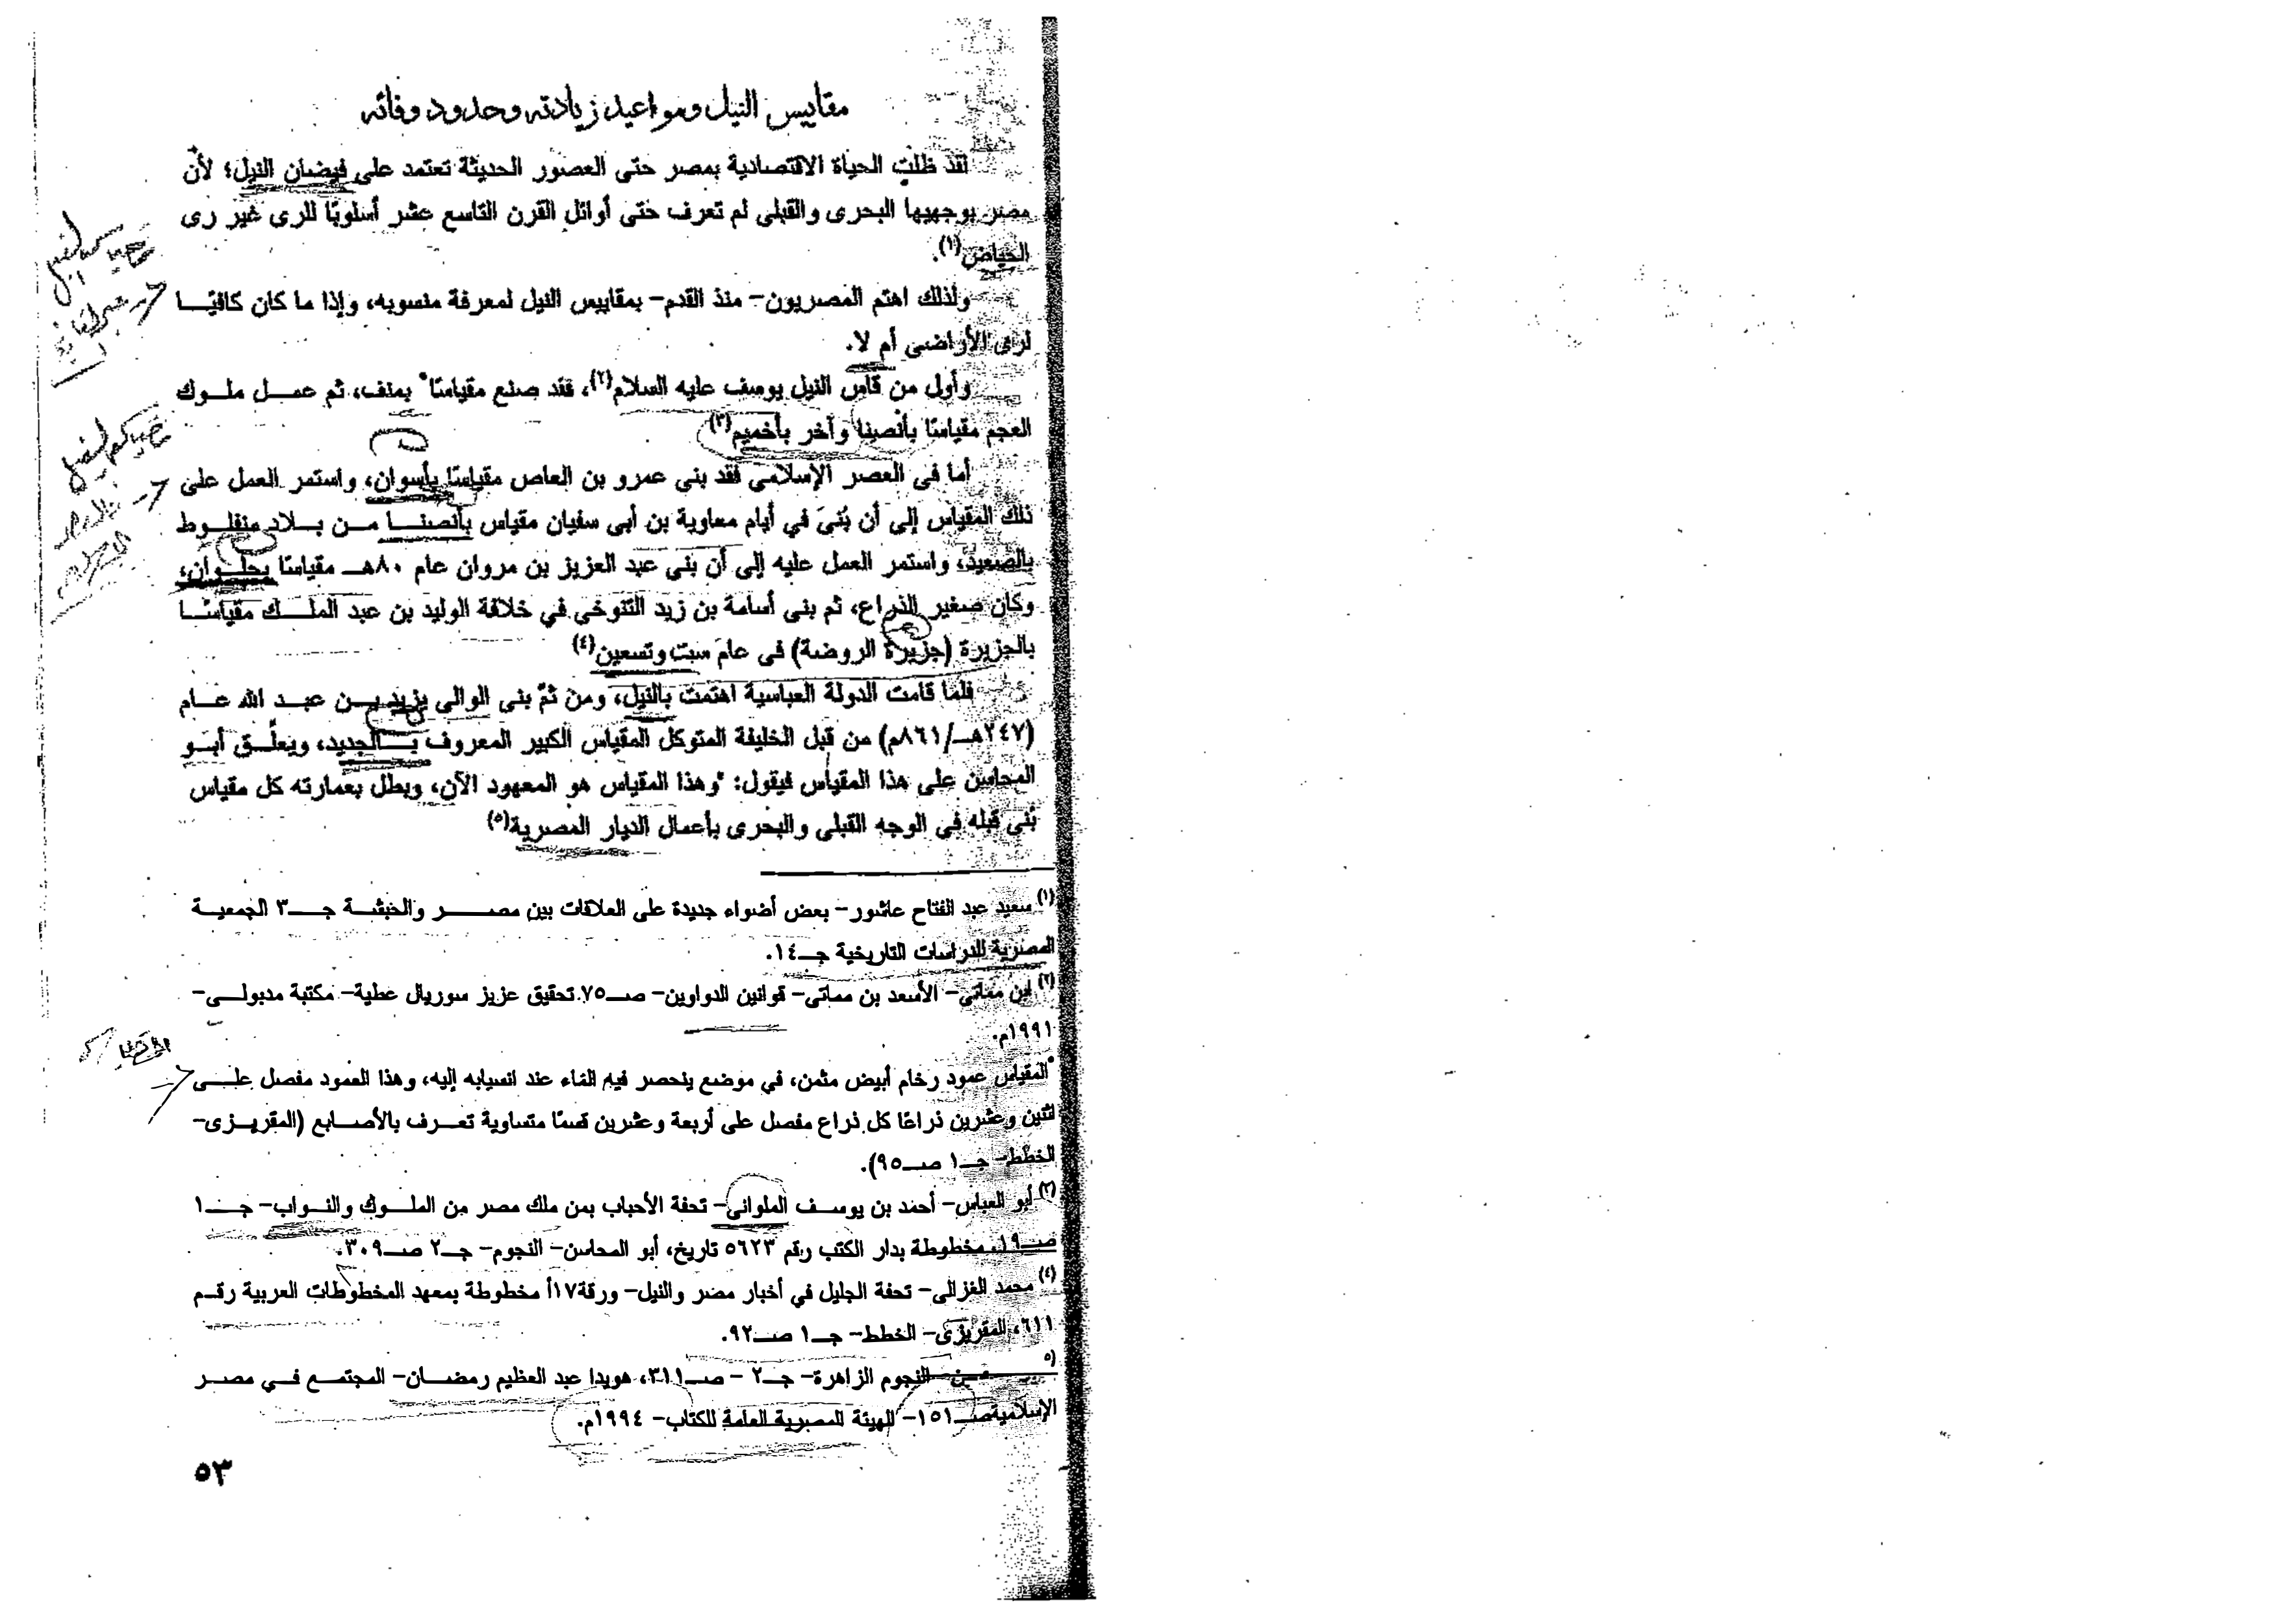 مقاييس النيل ومواعيد زيادته وحدود وفائه
لقد ظلت الحياة الاقتصادية بمصر حتى العصور الحديثة تعتمد على فيضان النيل؛ لأن
مصر بوجهيها البحرى والقبلى لم تعرف حتى أوائل القرن التاسع عشر أسلوبًا للرى غير رى
الحياض(١).
ولذلك اهتم المصريون- منذ القدم- بمقاييس النيل لمعرفة منسوبه، وإذا ما كان كافيًـــا
لرى الأراضى أم لا.
وأول من قاس النيل يوسف عليه السلام(٢)، فقد صنع مقياسًا* بمنف، ثم عمـــل ملـــوك
العجم مقياسًا بأنصنا وآخر بأخميم(٣)
أما فى العصر الإسلامى فقد بنى عمرو بن العاص مقياسًا بأسوان، واستمر العمل على
ذلك المقياس إلى أن بُنىَ في أيام معاوية بن أبى سفيان مقياس بأنصنـــا مـــن بـــلاد منفلـــوط
بالصعيد، واستمر العمل عليه إلى أن بنى عبد العزيز بن مروان عام ٨٠هـــ مقياسًا بحلـــوان،
وكان صغير الذراع، ثم بنى أسامة بن زيد التنوخى في خلافة الوليد بن عبد الملـــك مقياسًـــا
بالجزيرة (جزيرة الروضة) فى عام ست وتسعين(٤)
فلما قامت الدولة العباسية اهتمت بالنيل، ومن ثمّ بنى الوالى يزيد بـــن عبـــد الله عـــام
(٢٤٧هـــ/٨٦١م) من قبل الخليفة المتوكل المقياس الكبير المعروف بـــالجديد، ويعلّـــق أبـــو
المحاسن على هذا المقياس فيقول: "وهذا المقياس هو المعهود الآن، وبطل بعمارته كل مقياس
بُنى قبله في الوجه القبلى والبحرى بأعمال الديار المصرية(٥)
(١) سعيد عبد الفتاح عاشور- بعض أضواء جديدة على العلاقات بين مصـــر والحبشـــة جـــ٣ الجمعيـــة
المصرية للدراسات التاريخية جـــ١٤.
(٢) ابن مماتى- الأسعد بن مماتى- قوانين الدواوين- صـــ٧٥ تحقيق عزيز سوريال عطية- مكتبة مدبولـــى-
١٩٩١م.
* المقياس عمود رخام أبيض مثمن، في موضع ينحصر فيه الماء عند انسيابه إليه، وهذا العمود مفصل علـــى
اثنين وعشرين ذراعًا كل ذراع مفصل على أربعة وعشرين قسمًا متساوية تعـــرف بالأصـــابع (المقريـــزى-
الخطط- جـــ١ صـــ٩٥).
(٣) أبو العباس- أحمد بن يوســـف الملوانى- تحفة الأحباب بمن ملك مصر من الملـــوك والنـــواب- جـــ١
صـــ١٩، مخطوطة بدار الكتب رقم ٥٦٢٣ تاريخ، أبو المحاسن- النجوم- جـــ٢ صـــ٣٠٩.
(٤) محمد الغزالى- تحفة الجليل في أخبار مصر والنيل- ورقة١٧أ مخطوطة بمعهد المخطوطات العربية رقـــم
٦١١، المقريزى- الخطط- جـــ١ صـــ٩٢.
(٥ النجوم الزاهرة- جـــ٢ - صـــ٣١١، هويدا عبد العظيم رمضـــان- المجتمـــع فـــي مصـــر
الإسلامية صـــ١٥١- الهيئة المصرية العامة للكتاب- ١٩٩٤م.
٥٣